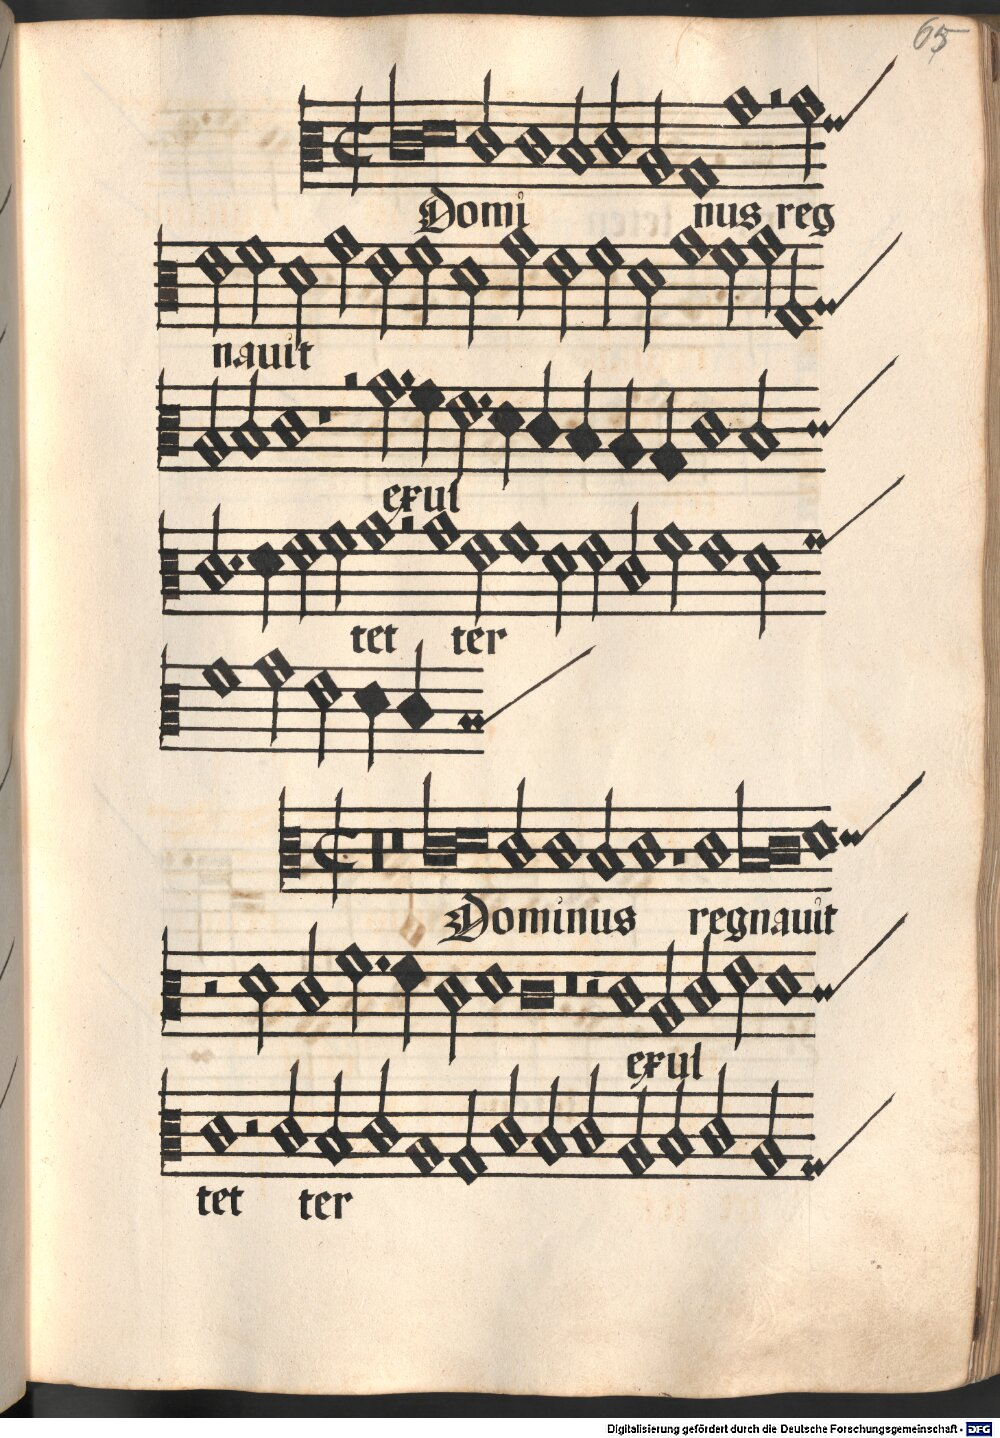 65
Domi nus reg
nauit
exul
tet ter
Dominus regnauit
exul
tet ter
Digitalisierung gefördert durch die Deutsche Forschungsgemeinschaft - DFG